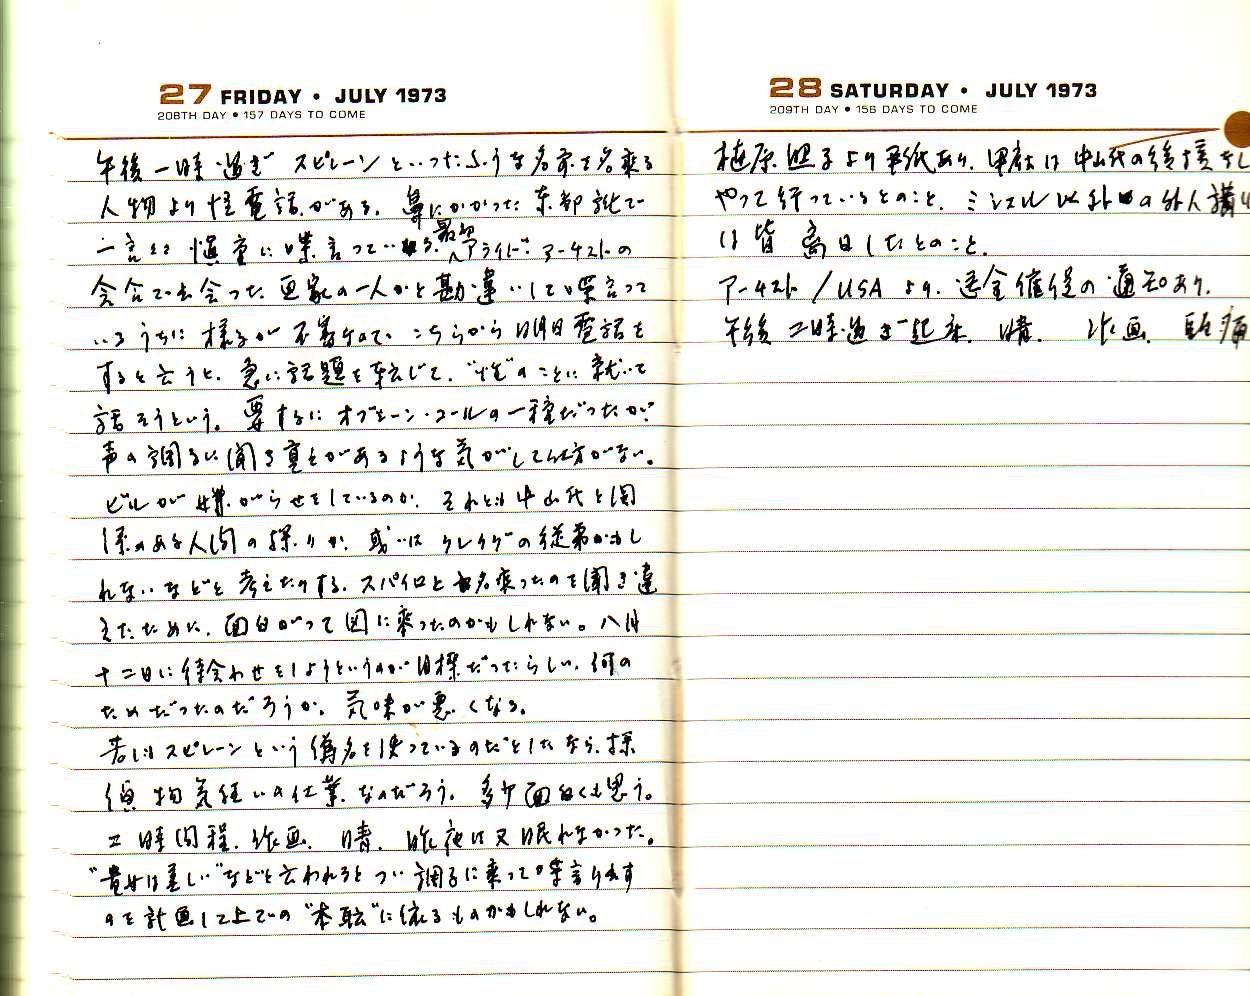 27 FRIDAY • JULY 1973
208TH DAY • 157 DAYS TO COME
午後一時過ぎ スピレーンといったような名前を名乗る
人物より怪電話がある。鼻にかかった東部訛で
一言々々慎重に喋言っている。最初アライド・アーチストの
会合で出会った画家の一人かと勘違いして喋言って
いるうちに様子が不審なので、こちらから明日電話を
すると云うと、急に話題を転じて、"性"のことに就いて
話そうという。要するにオブシーン・コールの一種だったが
声の調子に聞き覚えがあるような気がして仕方がない。
ビルが嫌がらせをしているのか、それとも中山氏と関
係のある人間の探りか、或いはクレイグの従弟かもし
れないなどと考えたりする。スパイロと名乗ったのを聞き違
えたために、面白がって図に乗ったのかもしれない。八月
十二日に待合わせをしようというのが目標だったらしい。何の
ためだったのだろうか。気味が悪くなる。
若しもスピレーンという偽名を使っているのだとしたなら、探
偵物気狂いの仕業なのだろう。多少面白くも思う。
二時間程、作画。晴。昨夜は又眠れなかった。
"貴女は美しい"などと云われるとつい調子に乗って喋言り出す
のを計画して上での"本転"に依るものかもしれない。
28 SATURDAY • JULY 1973
209TH DAY • 156 DAYS TO COME
植原照子より手紙あり。は中山氏の後援をし
やって行っているとのこと。ミシェル以外の外人講
は皆離日したとのこと。
アーチスト/USAより、送金催促の通知あり。
午後二時過ぎ起床。晴。作画。頭痛